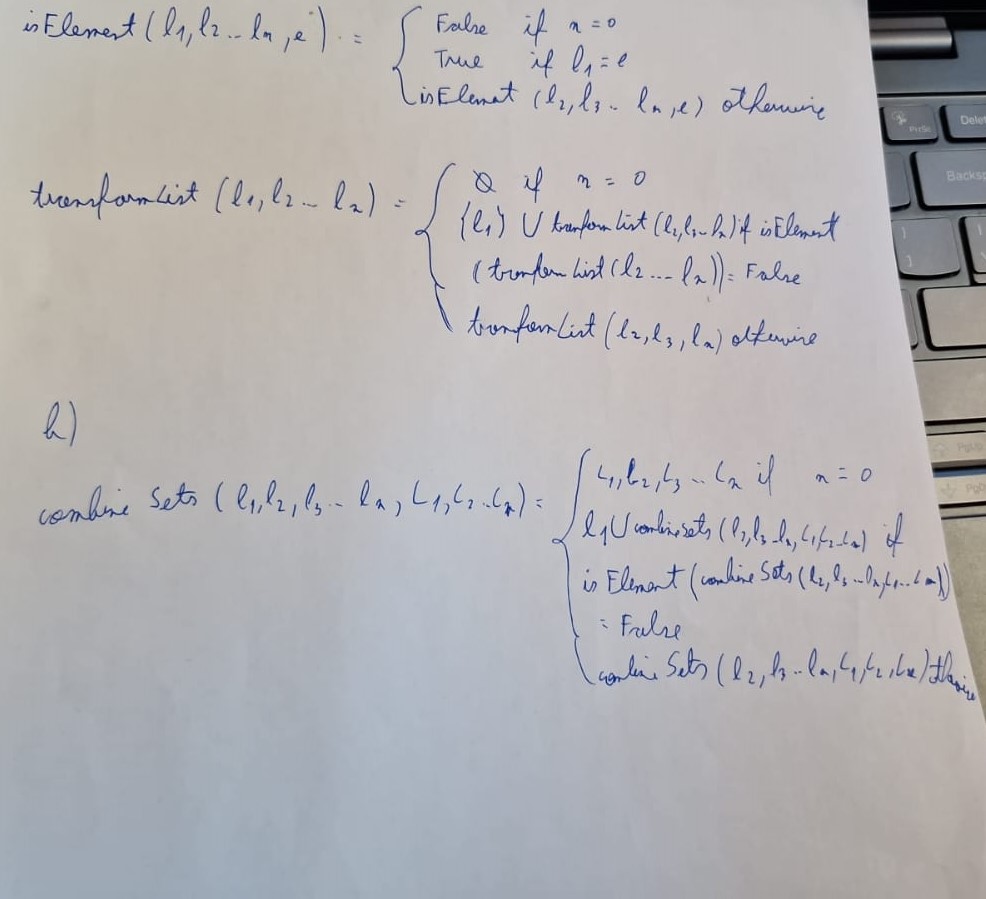 isElement (l1, l2 .. ln, e) = { False if n = 0
True if l1 = e
isElemat (l2, l3 .. ln, e) otherwise
transformList (l1, l2 ... ln) = { ∅ if n = 0
{l1} U tranformList (l2, l3 .. ln) if isElement
(tranformList (l2 .... ln)) = False
tranformList (l2, l3, ln) otherwise
b)
combine Sets (l1, l2, l3 .. ln, L1, L2 .. Ln) = { L1, L2, L3 .. Ln if n = 0
l1 U combinesets (l2, l3 .. ln, L1, L2 .. Ln) if
is Element (combine Sets (l2, l3 .. ln, L1 ... Lm))
= False
combine Sets (l2, l3 .. ln, L1, L2, Ln) otherwise
PrtSc
Delet
Backsp
PgUp